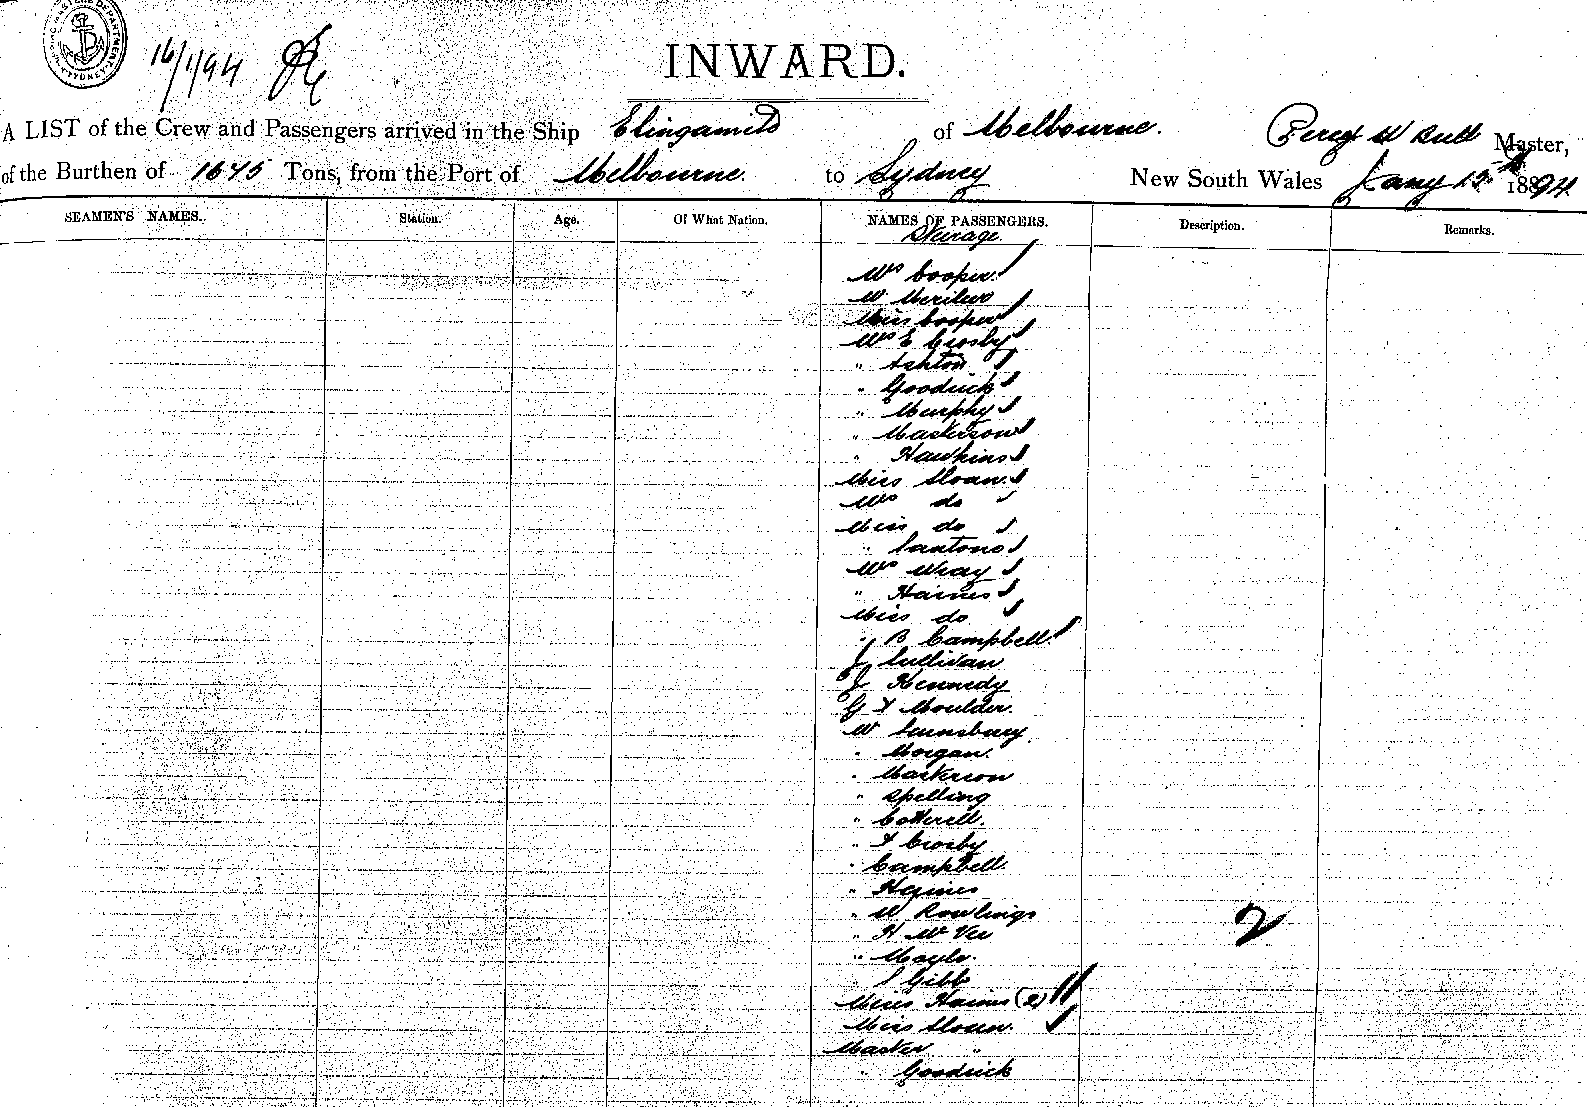 16/1/94
INWARD.
A LIST of the Crew and Passengers arrived in the Ship Elingamite of Melbourne. Percy W Bull Master,
of the Burthen of 1675 Tons, from the Port of Melbourne. to Sydney New South Wales Jany 15th 1894
SEAMEN'S NAMES. Station. Age. Of What Nation. NAMES OF PASSENGERS. Description. Remarks.
Steerage.
Mrs Cooper
W
Miss Cooper
Mrs E Crosby
" Ashton
" Goodrick
" Murphy
" Masterson
" Hawkins
Miss Sloan
Mrs do
Miss do
" Santono
Mrs Wray
" Haines
Miss do
" B Campbell
J Sullivan
J Kennedy
G F Moulder.
W Sainsbury
" Morgan.
" Masterson
" Spelling
" Cotterell.
" F Crosby
" Campbell.
" Haines
" W Rowlings
" H
" Moyle.
J Gibb
Misses Haines (2)
Miss Sloan.
Master "
" Goodrick
2